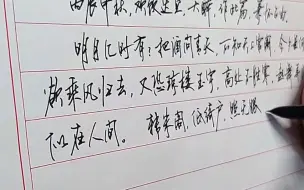 丙辰中秋，欢饮达旦，大醉，作此篇，兼怀子由。
明月几时有？把酒问青天。不知天上宫阙，今夕是何
欲乘风归去，又恐琼楼玉宇，高处不胜寒，起舞弄
似在人间。转朱阁，低绮户，照无眠